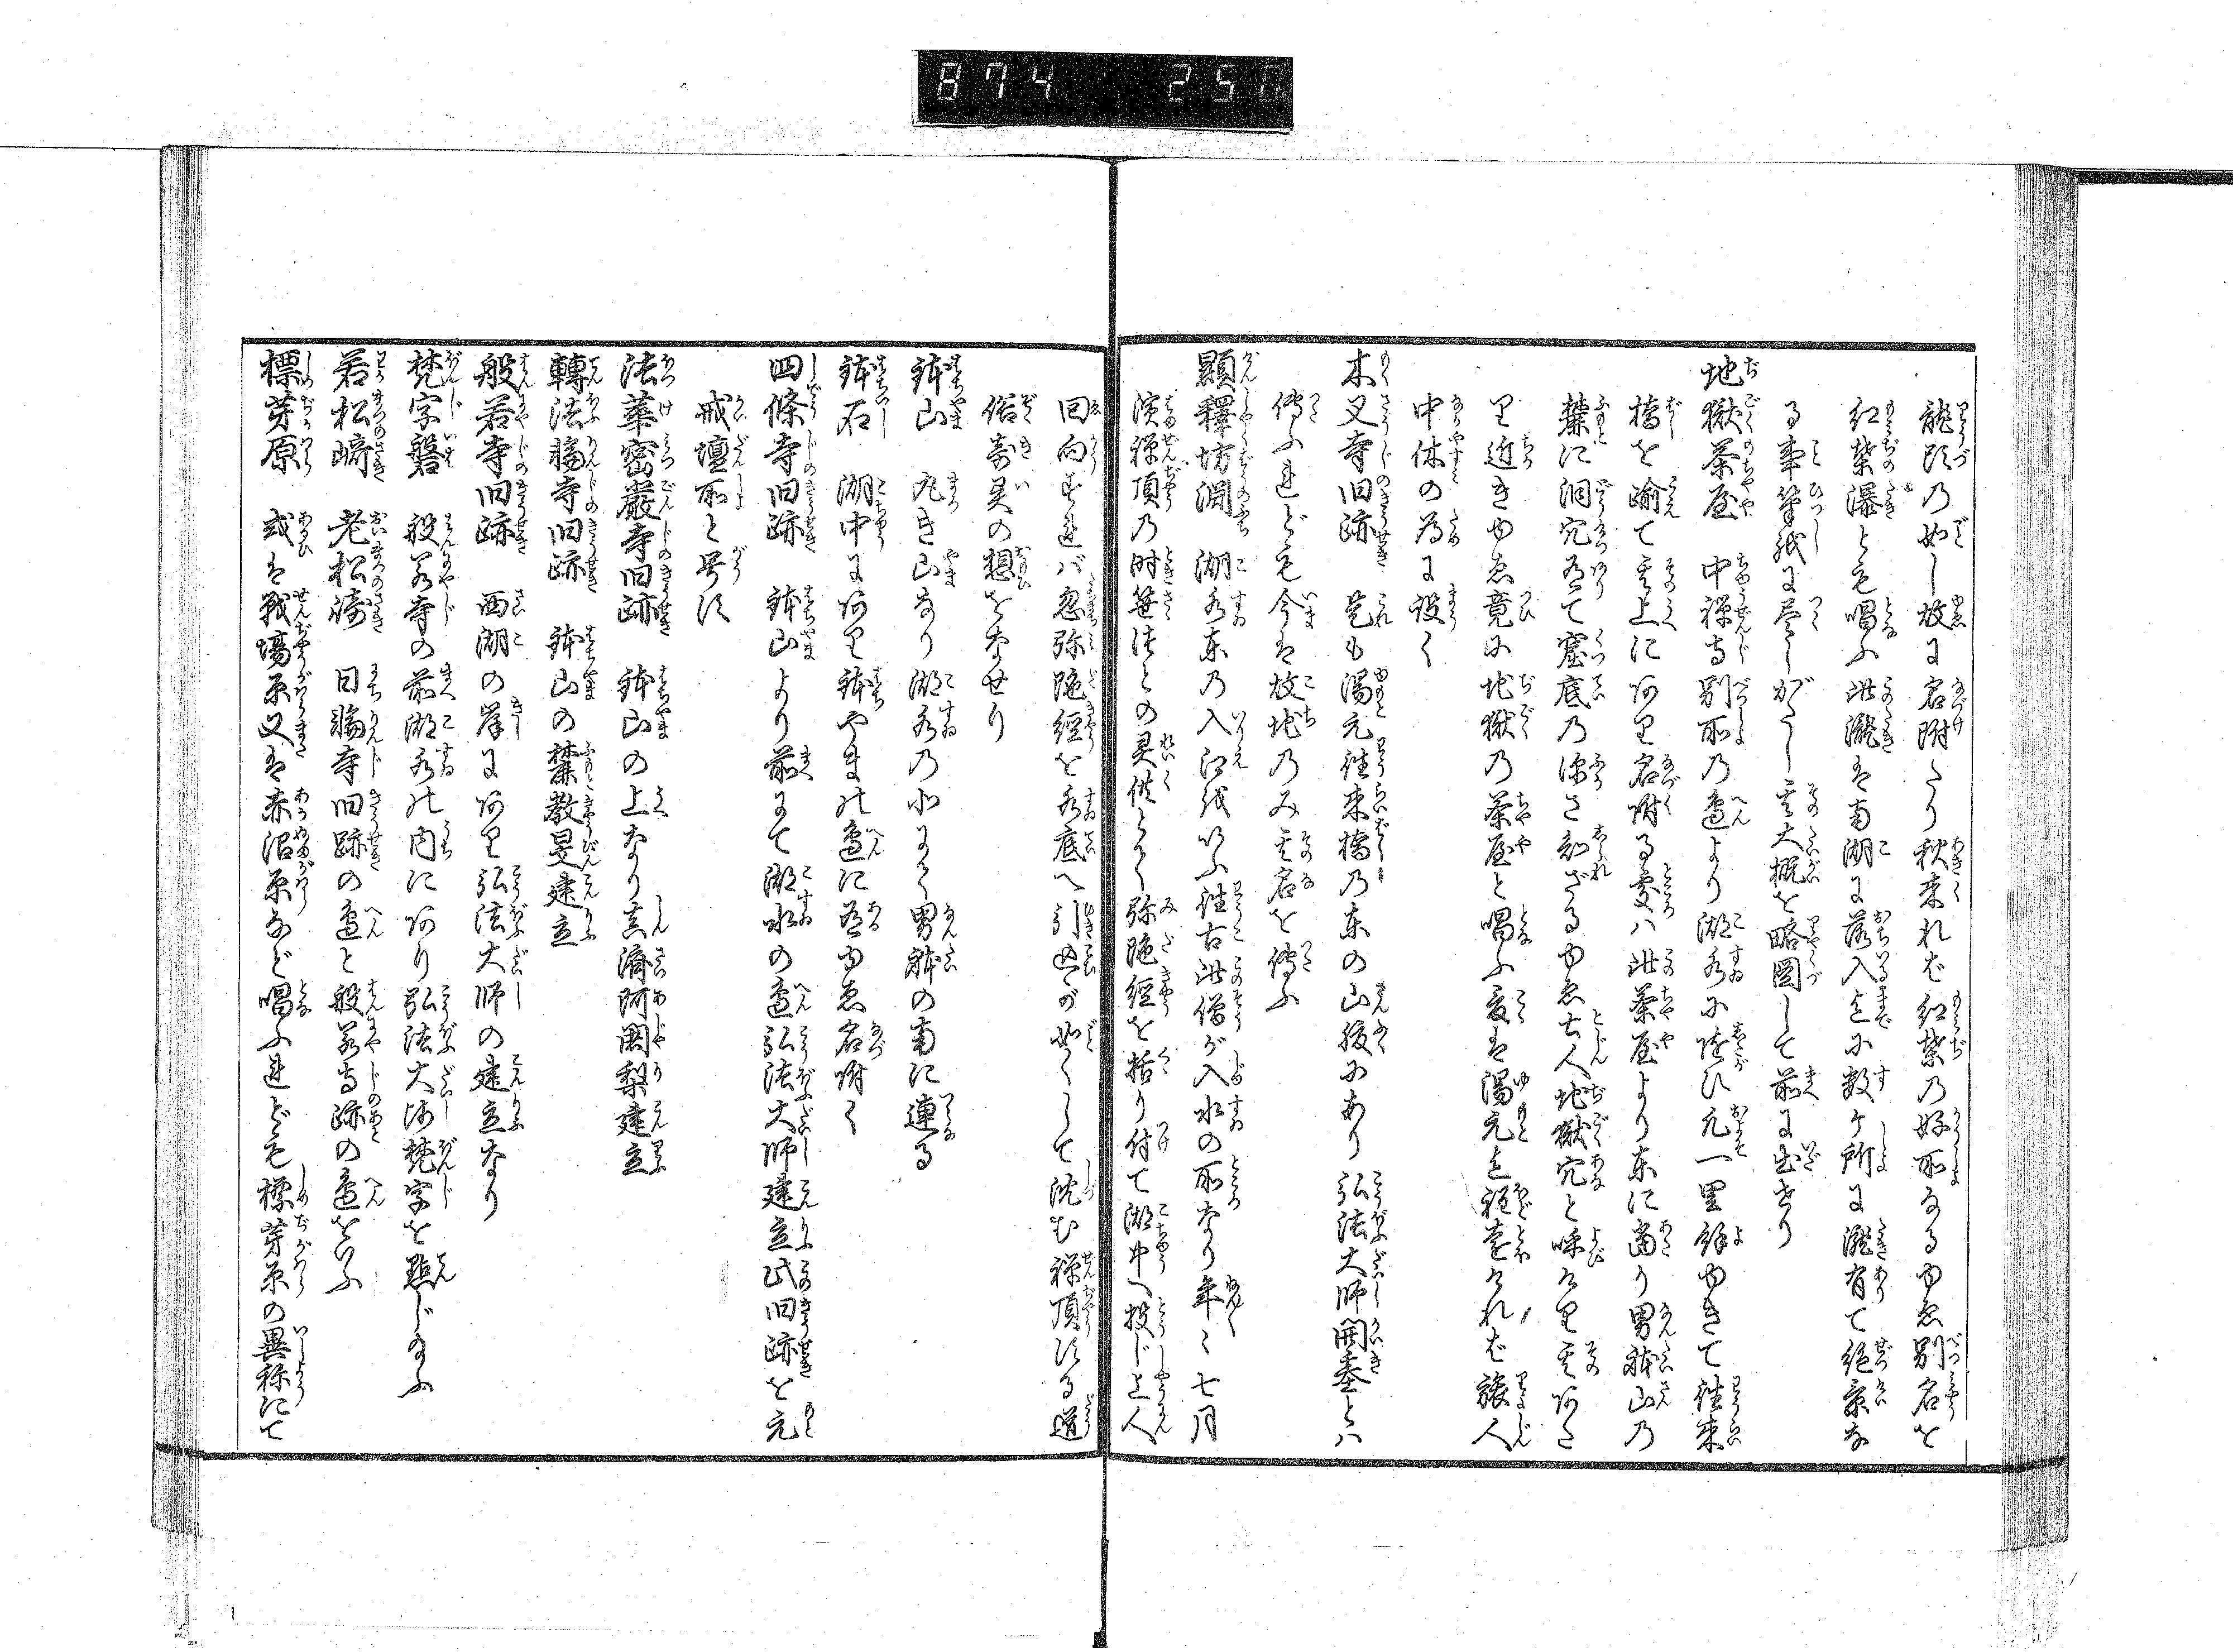 874 250
龍頭の如し故に名附たり秋来れば紅葉の好所なるゆゑ別名を
紅葉瀑とも唱ふ此瀧は南湖に落入迄に数ケ所に瀧有て絶景な
る事筆紙に尽しがたし其大概を略図して前に出せり
地獄茶屋 中禅寺別所の邉より湖水に随ひ凡一里餘ゆきて往来
橋を踰て其上にあり名附る處ハ此茶屋より東に當り男躰山の
麓に洞穴有て窟底の深さ知れざるゆゑ土人地獄穴と呼けり其あた
り近きゆゑ竟に地獄の茶屋と唱ふ爰は湯元迄程遠けれ,ば旅人
中休の為に設く
木叉寺旧跡 是も湯元往来橋の東の山腹にあり弘法大師開基とハ
傳ふれども今は故地のみ其名を傳ふ
顕釋坊淵 湖水東の入江をいふ往古此僧が入水の所なり年〻七月
濱禅頂の時笹汁との灵供とて弥陁經を括り付て湖中へ投じ上人
回向すれば忽弥陁經を水底へ引込が如くして沈む禅頂する道
俗奇異の想をなせり
鉢山 丸き山なり湖水の北にて男躰の南に連る
鉢石 湖中にあり鉢やまの邉に有ゆゑ名附く
四條寺旧跡 鉢山より前にて湖水の邉弘法大師建立此旧跡を元
戒壇所と号す
法華密嚴寺旧跡 鉢山の上なり真濟阿闍梨建立
轉法輪寺旧跡 鉢山の麓教旻建立
般若寺旧跡 西湖の岸にあり弘法大師の建立なり
梵字磐 般若寺の前湖水の内にあり弘法大師梵字を點じ給ふ
若松﨑 老松﨑 日輪寺旧跡の邉と般若寺跡の邉をいふ
標芽原 或は戰場原又は赤沼原など唱ふれども標芽原の異称にて